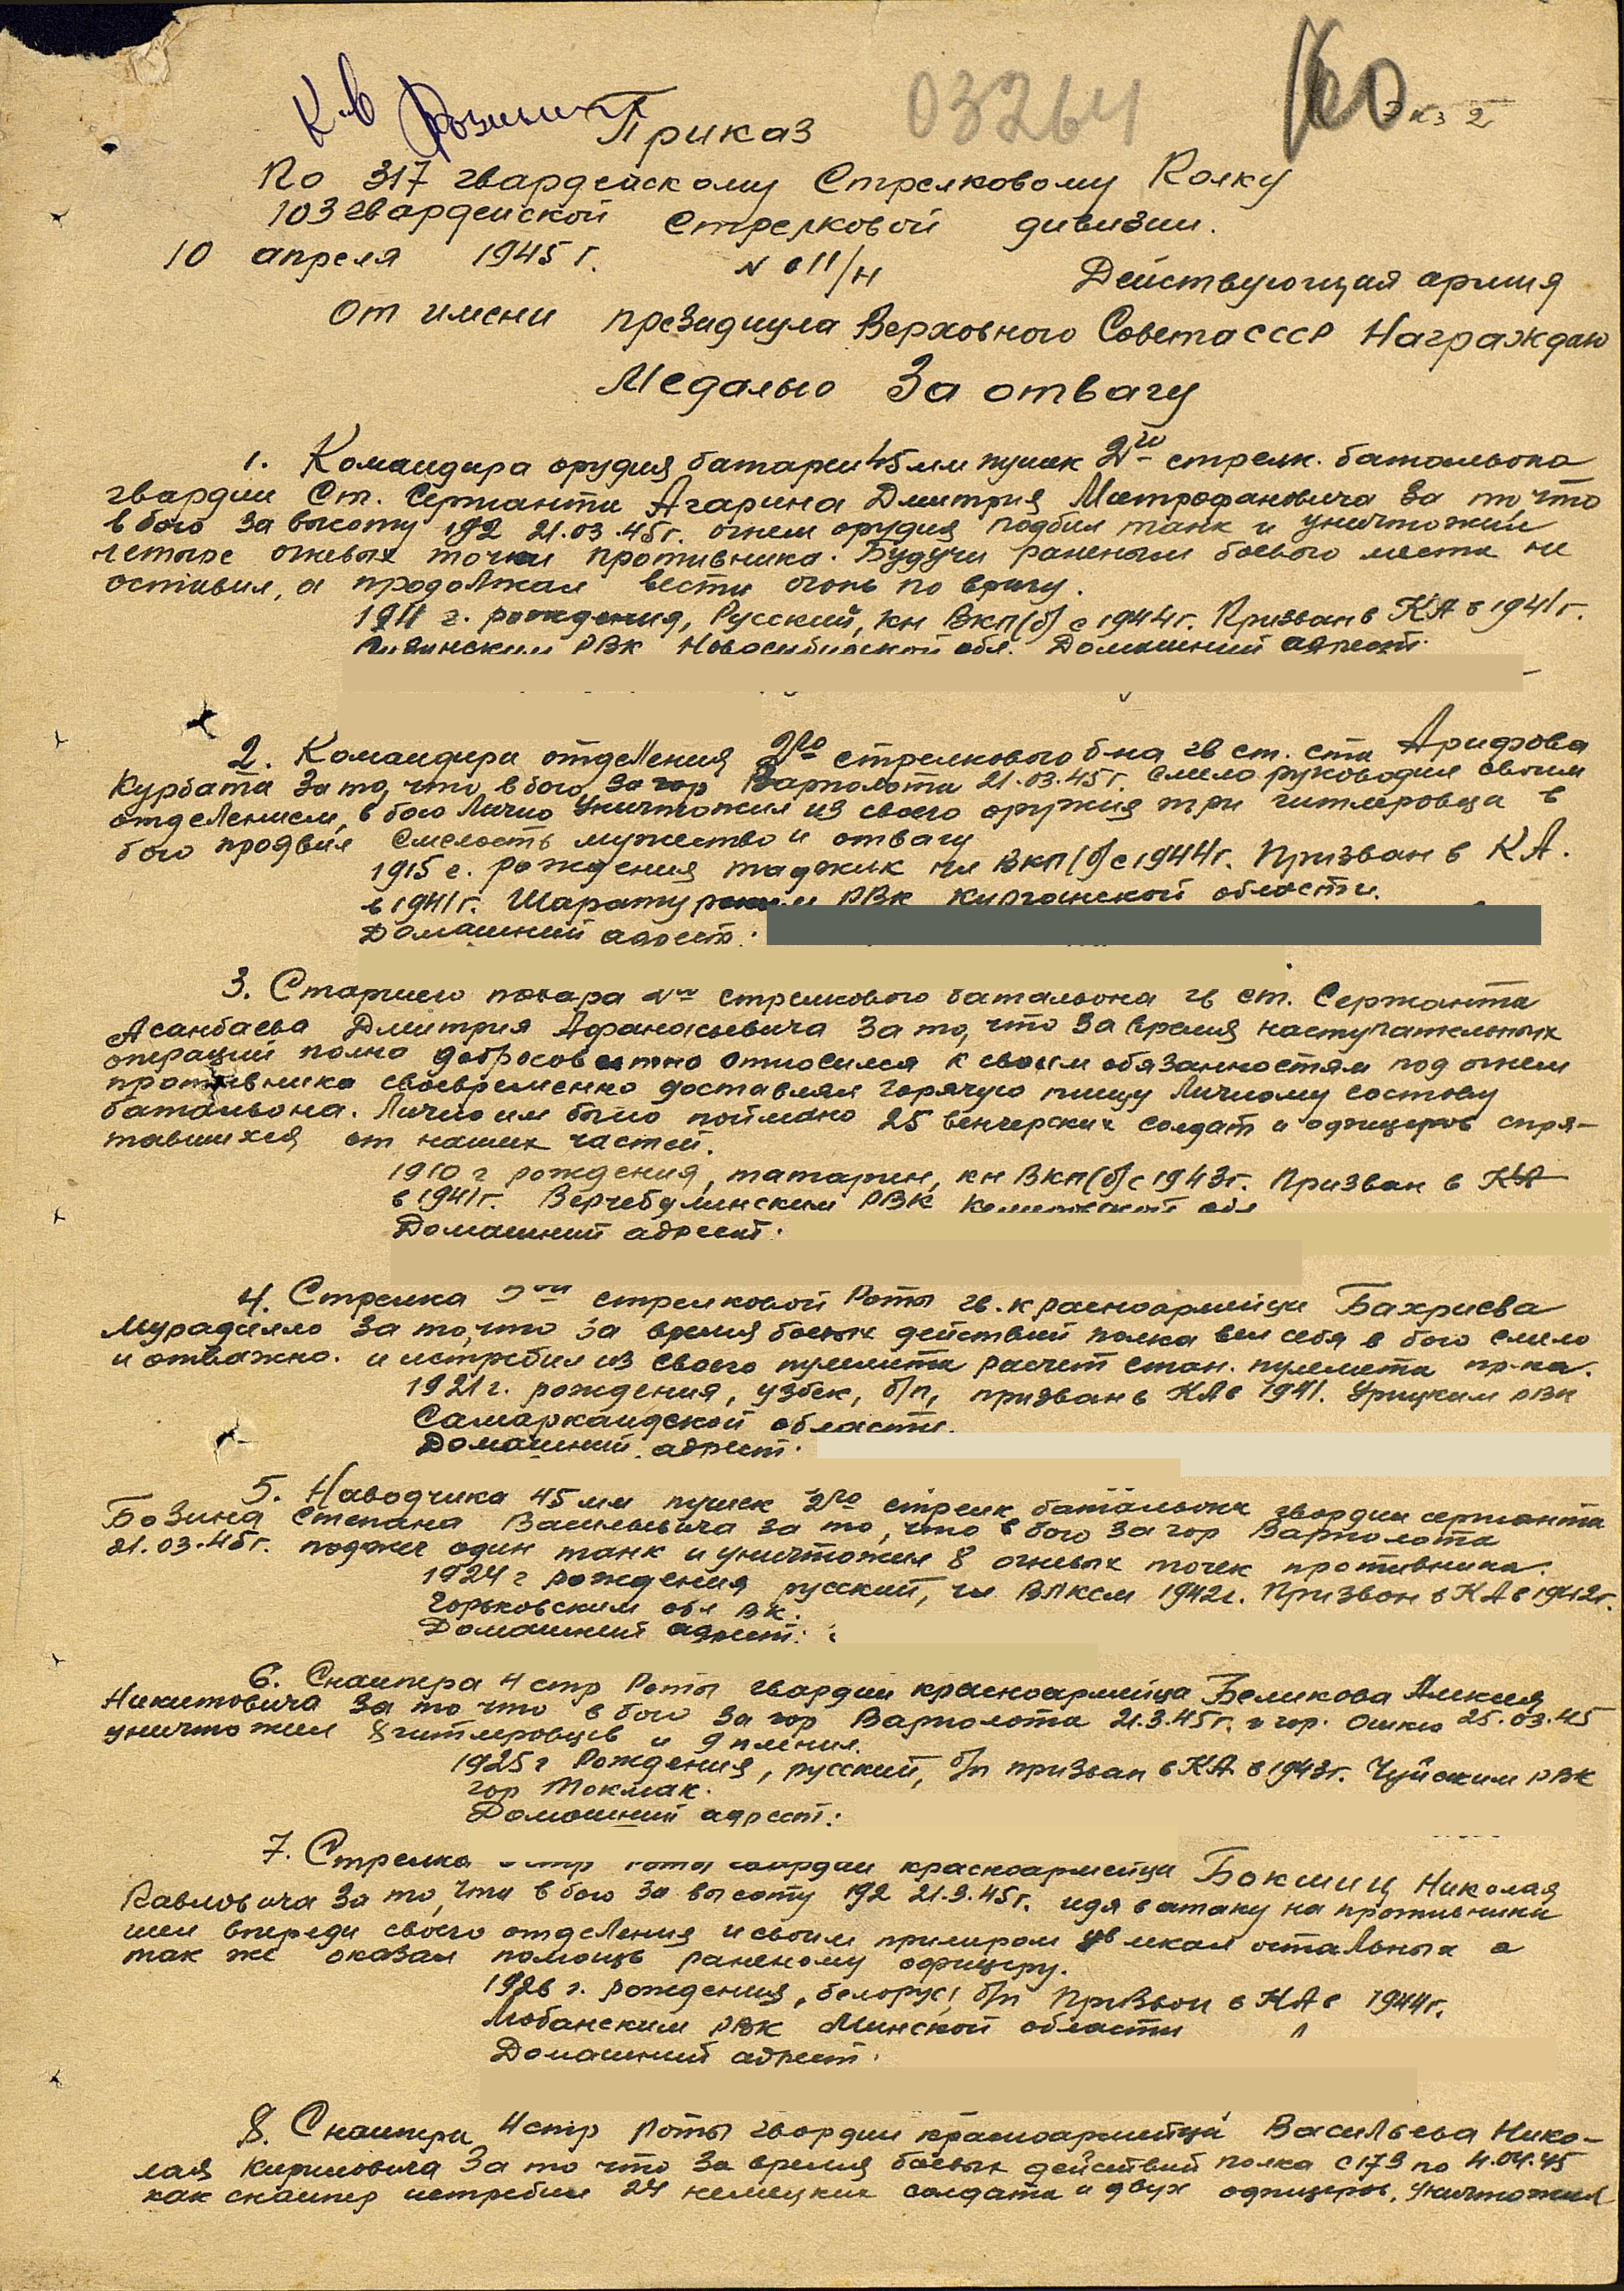 03264
экз 2
Приказ
По 317 гвардейскому Стрелковому Полку
103 гвардейской Стрелковой дивизии.
10 апреля 1945 г. N 011/н Действующая армия
От имени президиума Верховного Совета СССР Награждаю
Медалью За отвагу
1. Командира орудия батареи 45 мм пушек 2го стрелк. батальона
гвардии Ст. Сержанта Агарина Дмитрия Митрофановича За то, что
в бою за высоту 192 21.03.45г. огнем орудия подбил танк и уничтожил
четыре огневых точки противника. Будучи раненым боевого места не
оставил, а продолжал вести огонь по врагу.
1911 г. рождения, Русский, кн ВКП(б) с 1944г. Призван в КА в 1941г.
РВК Новосибирской обл. Домашний адрест:
2. Командира отделения 2го стрелкового б-на гв ст. с-та Арифова
Курбата За то, что в бою за гор Варполота 21.03.45г. смело руководил своим
отделением, в бою лично уничтожил из своего оружия три гитлеровца в
бою продвил смелость мужество и отвагу
1915 г. рождения таджик чл ВКП(б) с 1944г. Призван в КА.
в 1941г. РВК Курганской области.
Домашний адрест:
3. Старшего повара стрелкового батальона гв ст. Сержанта
Асанбаева Дмитрия Афанасьевича За то, что за время наступательных
операций полка добросовестно относился к своим обязанностям под огнем
противника своевременно доставлял горячую пищу личному составу
батальона. Лично им было поймано 25 венгерских солдат и офицеров спря-
тавшихся от наших частей.
1910 г рождения, татарин, кн ВКП(б) с 1943г. Призван в КА
в 1941г. Верчебулинским РВК Кемеровской обл
Домашний адрест:
4. Стрелка стрелковой Роты гв. красноармейца Бахриева
Мурадилло За то, что за время боевых действий полка вел себя в бою смело
и отважно. и истребил из своего пулемета расчет стан. пулемета пр-ка.
1921 г. рождения, узбек, б/п, призван в КА в 1941. Урицким РВК
Самаркандской области.
Домашний адрест:
5. Наводчика 45 мм пушек 2го стрелк батальона гвардии сержанта
Бозина Степана Васильевича За то, что в бою за гор Варполота
21.03.45г. поджег один танк и уничтожил 8 огневых точек противника.
1924 г рождения русский, чл ВЛКСМ 1942г. Призван в КА в 1942г.
Горьковским обл ВК.
Домашний адрест:
6. Снайпера 4 стр Роты гвардии красноармейца Беликова Алексея
Никитовича За то что в бою за гор Варполота 21.3.45г. и гор. 25.03.45
уничтожил 8 гитлеровцев и 9 пленил.
1925 г Рождения, русский, б/п призван в КА в 1943г. Чуйским РВК
гор Токмак.
Домашний адрест:
7. Стрелка стр роты гвардии красноармейца Бокшиц Николая
Павловича За то, что в бою за высоту 192 21.3.45г. идя в атаку на противника
шел впереди своего отделения и своим примиром увлекал остальных а
так же оказал помощь раненому офицеру.
1926 г. рождения, белорус, б/п Призван в КА в 1944г.
Любанским РВК Минской области
Домашний адрест:
8. Снайпера 4 стр Роты гвардии красноармейца Васильева Нико-
лая Кириловича За то что за время боевых действий полка с 17.3 по 4.04.45
как снайпер истребил 24 немецких солдата и двух офицеров, уничтожил